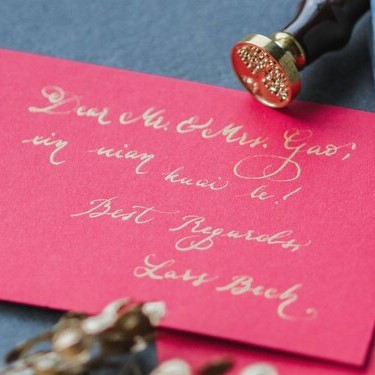 Dear Mr. & Mrs. Gao,
xin nian kuai le!
Best Regards,
Lars Bech,